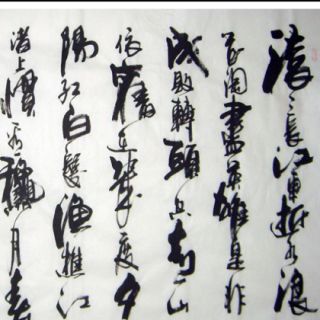 滚々長江東逝水浪
花淘盡英雄是非
成敗轉頭空青山
依舊在幾度夕
陽紅白髮漁樵江
渚上慣看秋月春